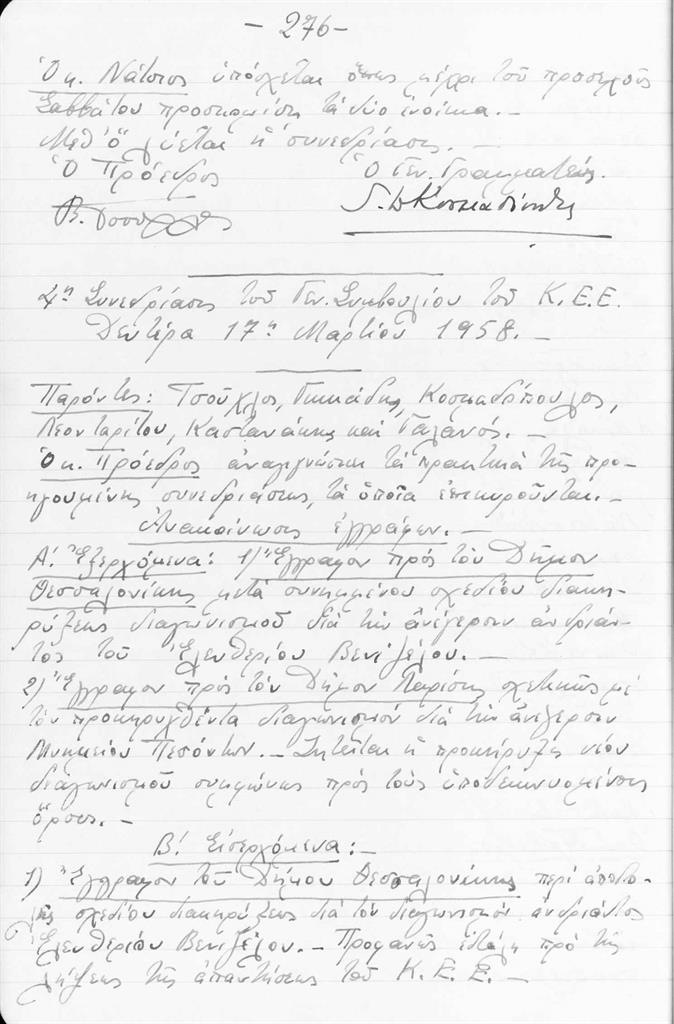 - 276 -
Ὁ κ. Νάτσιος ὑπόσχεται ὅπως μέχρι τοῦ προσεχοῦς
Σαββάτου προσκομίσῃ τὰ δύο ἐνοίκια. -
Μεθ' ὅ λύεται ἡ συνεδρίασις. -
Ὁ Πρόεδρος Ὁ Γεν. Γραμματεύς.
4η Συνεδρίασις τοῦ Γεν. Συμβουλίου τοῦ Κ.Ε.Ε.
Δευτέρα 17η Μαρτίου 1958. -
Παρόντες: Τσοῦχλος, Γιμιάδης, Κοσμαδόπουλος,
Λεονταρίτου, Καστανάκης καὶ Γαλανός. -
Ὁ κ. Πρόεδρος ἀναγιγνώσκει τὰ πρακτικὰ τῆς προ-
ηγουμένης συνεδριάσεως, τὰ ὁποῖα ἐπικυροῦνται. -
Ἀνακοίνωσις ἐγγράφων. -
Α. Ἐξερχόμενα: 1) Ἔγγραφον πρὸς τὸν Δῆμον
Θεσσαλονίκης μετὰ συνημμένου σχεδίου διακη-
ρύξεως διαγωνισμοῦ διὰ τὴν ἀνέγερσιν ἀνδριάν-
τος τοῦ Ἐλευθερίου Βενιζέλου. -
2) Ἔγγραφον πρὸς τὸν Δῆμον Λαρίσης σχετικῶς μὲ
τὸν προκηρυχθέντα διαγωνισμὸν διὰ τὴν ἀνέγερσιν
Μνημείου Πεσόντων. - Ζητεῖται ἡ προκήρυξις νέου
διαγωνισμοῦ συμφώνως πρὸς τοὺς ὑποδεικνυομένους
ὅρους. -
Β. Εἰσερχόμενα: -
1) Ἔγγραφον τοῦ Δήμου Θεσσαλονίκης περὶ ἀποστο-
λῆς σχεδίου διακηρύξεως διὰ τὸν διαγωνισμὸν ἀνδριάντος
Ἐλευθερίου Βενιζέλου. - Προφανῶς ἐστάλη πρὸ τῆς
λήψεως τῆς ἀπαντήσεως τοῦ Κ.Ε.Ε. -